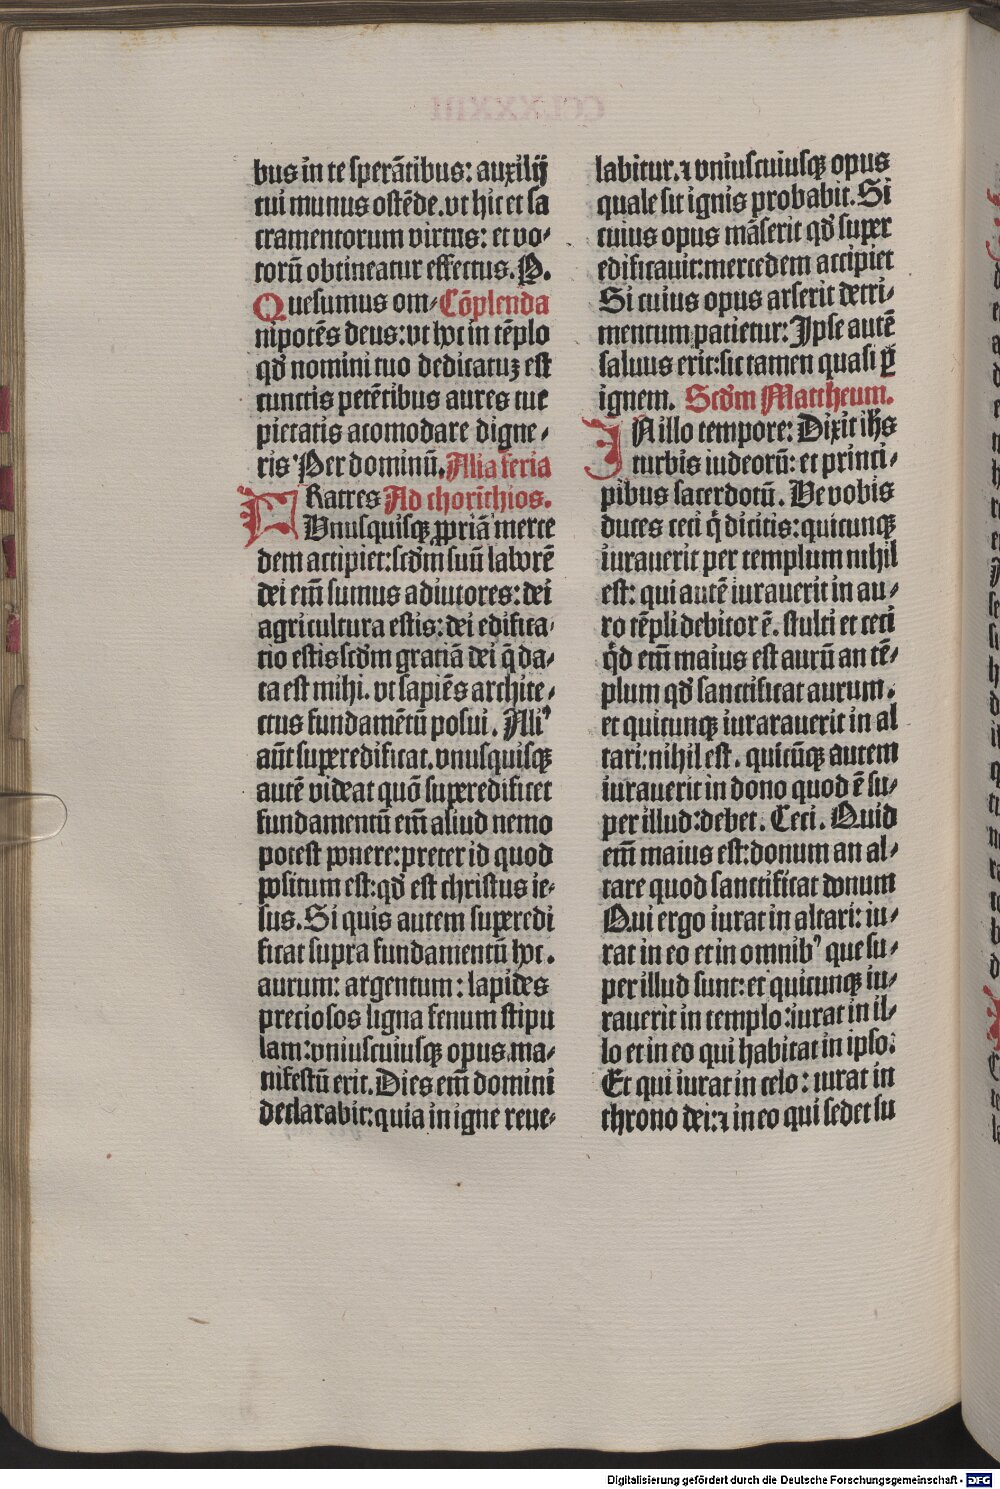 bus in te sperātibus: auxilij
tui munus ostēde. vt hic et sa
cramentorum virtus: et vo-
torū obtineatur effectus. P.
Quesumus om- Cōplenda
nipotēs deus: vt hoc in tēplo
qď nomini tuo dedicatuꝫ est
cunctis petētibus aures tue
pietatis acomodare digne-
ris Per dominū. Alia feria
FRatres Ad chorīthios.
Vnusquisqꝫ ꝓpriā merce
dem accipiet: scďm suū laborē
dei em̄ sumus adiutores: dei
agricultura estis: dei edifica-
tio estis scďm gratiā dei q̄ da-
ta est mihi. vt sapiēs archite-
ctus fundamētū posui. Aliꝰ
aūt superedificat. vnusquisqꝫ
autē videat quō superedificet
fundamentū em̄ aliud nemo
potest ponere: preter id quod
positum est: qď est christus ie-
sus. Si quis autem superedi
ficat supra fundamentū hoc.
aurum: argentum: lapides
preciosos ligna fenum stipu
lam: vniuscuiusqꝫ opus ma-
nifestū erit. Dies em̄ domini
declarabit: quia in igne reue-
labitur. ⁊ vniuscuiusqꝫ opus
quale sit ignis probabit. Si
cuius opus māserit qď super
edificauit: mercedem accipiet
Si cuius opus arserit detri-
mentum patietur: Ipse autē
saluus erit: sic tamen quasi ꝑ
ignem. Scďm Mattheum.
IN illo tempore: Dixit ihs
turbis iudeorū: et princi-
pibus sacerdotū. Ve vobis
duces ceci q̇ dicitis: quicunqꝫ
iurauerit per templum nihil
est: qui autē iurauerit in au-
ro tēpli debitor ē. stulti et ceci
q̇d em̄ maius est aurū an tē-
plum qď sanctificat aurum.
et quicunqꝫ iurarauerit in al
tari: nihil est. quicūqꝫ autem
iurauerit in dono quod ē su-
per illud: debet. Ceci. Quid
em̄ maius est: donum an al-
tare quod sanctificat donum
Qui ergo iurat in altari: iu-
rat in eo et in omnibꝰ que su-
per illud sunt: et quicunqꝫ iu-
rauerit in templo: iurat in il-
lo et in eo qui habitat in ipso.
Et qui iurat in celo: iurat in
throno dei: ⁊ in eo qui sedet su
Digitalisierung gefördert durch die Deutsche Forschungsgemeinschaft - DFG